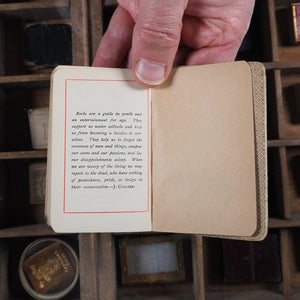 Books are a guide to youth and
an entertainment for age. They
support us under solitude and keep
us from becoming a burden to our-
selves. They help us to forget the
crossness of men and things, compose
our cares and our passions, and lay
our disappointments asleep. When
we are weary of the living we may
repair to the dead, who have nothing
of peevishness, pride, or design in
their conversation.—J. COLLIER.